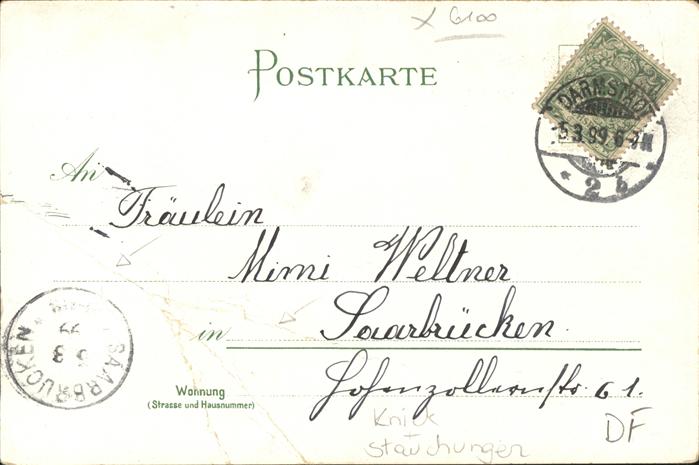 x 6100
POSTKARTE
DARMSTADT
5.3.99.6-7N
* 2 b
An
Fräulein
Mimi Weltner
in Saarbrücken.
Hohenzollernstr. 61.
Wohnung
(Strasse und Hausnummer)
SAARBRÜCKEN
6 3
99
Knick
+
Stauchungen
DF